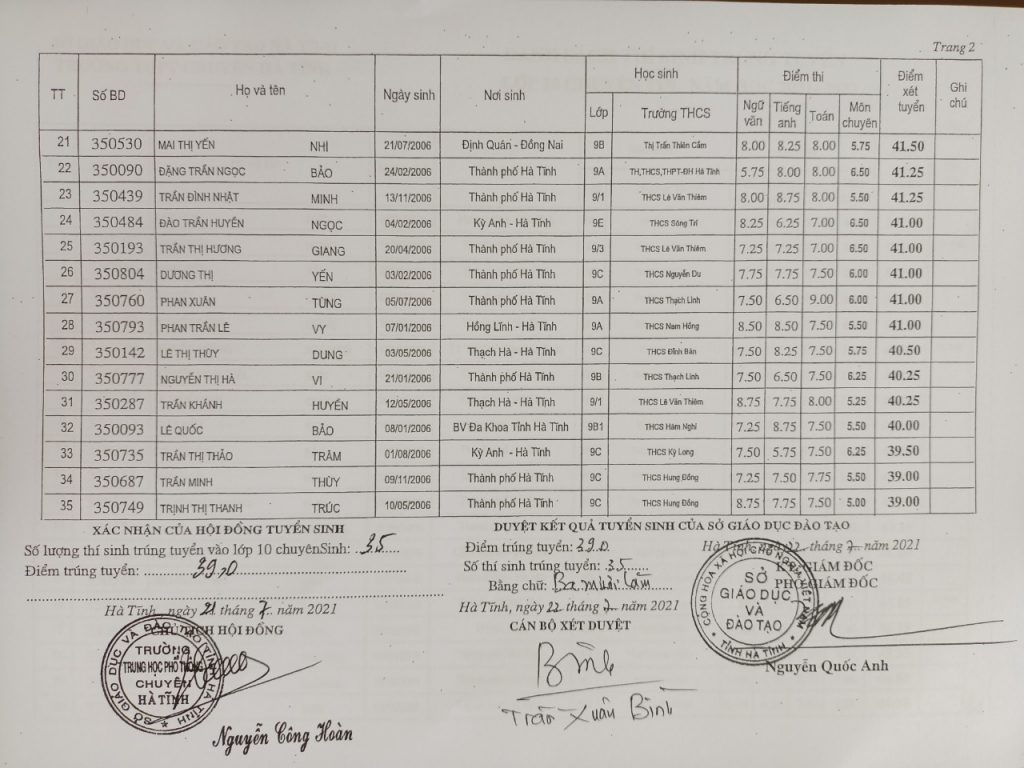 Trang 2
TT Số BD Họ và tên Ngày sinh Nơi sinh Học sinh Điểm thi Điểm xét tuyển Ghi chú
Lớp Trường THCS Ngữ văn Tiếng anh Toán Môn chuyên
21 350530 MAI THỊ YẾN NHI 21/07/2006 Định Quán - Đồng Nai 9B Thị Trấn Thiên Cầm 8.00 8.25 8.00 5.75 41.50
22 350090 ĐẶNG TRẦN NGỌC BẢO 24/02/2006 Thành phố Hà Tĩnh 9A TH,THCS,THPT-ĐH Hà Tĩnh 5.75 8.00 8.00 6.50 41.25
23 350439 TRẦN ĐÌNH NHẬT MINH 13/11/2006 Thành phố Hà Tĩnh 9/1 THCS Lê Văn Thiêm 8.00 8.75 8.00 5.50 41.25
24 350484 ĐÀO TRẦN HUYỀN NGỌC 04/02/2006 Kỳ Anh - Hà Tĩnh 9E THCS Sông Trí 8.25 6.25 7.00 6.50 41.00
25 350193 TRẦN THỊ HƯƠNG GIANG 20/04/2006 Thành phố Hà Tĩnh 9/3 THCS Lê Văn Thiêm 7.25 7.25 7.00 6.50 41.00
26 350804 DƯƠNG THỊ YẾN 03/02/2006 Thành phố Hà Tĩnh 9C THCS Nguyễn Du 7.75 7.75 7.50 6.00 41.00
27 350760 PHAN XUÂN TÙNG 05/07/2006 Thành phố Hà Tĩnh 9A THCS Thạch Linh 7.50 6.50 9.00 6.00 41.00
28 350793 PHAN TRẦN LÊ VY 07/01/2006 Hồng Lĩnh - Hà Tĩnh 9A THCS Nam Hồng 8.50 8.50 7.50 5.50 41.00
29 350142 LÊ THỊ THÙY DUNG 03/05/2006 Thạch Hà - Hà Tĩnh 9C THCS Đỉnh Bàn 7.50 8.25 7.50 5.75 40.50
30 350777 NGUYỄN THỊ HÀ VI 21/01/2006 Thành phố Hà Tĩnh 9B THCS Thạch Linh 7.50 6.50 7.50 6.25 40.25
31 350287 TRẦN KHÁNH HUYỀN 12/05/2006 Thạch Hà - Hà Tĩnh 9/1 THCS Lê Văn Thiêm 8.75 7.75 8.00 5.25 40.25
32 350093 LÊ QUỐC BẢO 08/01/2006 BV Đa Khoa Tỉnh Hà Tĩnh 9B1 THCS Hàm Nghi 7.25 8.75 7.50 5.50 40.00
33 350735 TRẦN THỊ THẢO TRÂM 01/08/2006 Kỳ Anh - Hà Tĩnh 9C THCS Kỳ Long 7.50 5.75 7.50 6.25 39.50
34 350687 TRẦN MINH THÙY 09/11/2006 Thành phố Hà Tĩnh 9C THCS Hưng Đồng 7.25 7.50 7.75 5.50 39.00
35 350749 TRỊNH THỊ THANH TRÚC 10/05/2006 Thành phố Hà Tĩnh 9C THCS Hưng Đồng 8.75 7.75 7.50 5.00 39.00
XÁC NHẬN CỦA HỘI ĐỒNG TUYỂN SINH
Số lượng thí sinh trúng tuyển vào lớp 10 chuyênSinh: .35......
Điểm trúng tuyển: .............39,0..............
Hà Tĩnh, ngày 21 tháng 7. năm 2021
CHỦ TỊCH HỘI ĐỒNG
SỞ GIÁO DỤC VÀ ĐÀO TẠO HÀ TĨNH
TRƯỜNG
TRUNG HỌC PHỔ THÔNG
CHUYÊN
HÀ TĨNH
Nguyễn Công Hoàn
DUYỆT KẾT QUẢ TUYỂN SINH CỦA SỞ GIÁO DỤC ĐÀO TẠO
Điểm trúng tuyển: 39.0.
Số thí sinh trúng tuyển: .35......
Bằng chữ: Ba mươi lăm
Hà Tĩnh, ngày 22 tháng 7.. năm 2021
CÁN BỘ XÉT DUYỆT
Bình
Trần Xuân Bình
Hà Tĩnh, ngày 22 tháng 7. năm 2021
KT. GIÁM ĐỐC
PHÓ GIÁM ĐỐC
CỘNG HÒA XÃ HỘI CHỦ NGHĨA VIỆT NAM
SỞ
GIÁO DỤC
VÀ
ĐÀO TẠO
TỈNH HÀ TĨNH
Nguyễn Quốc Anh